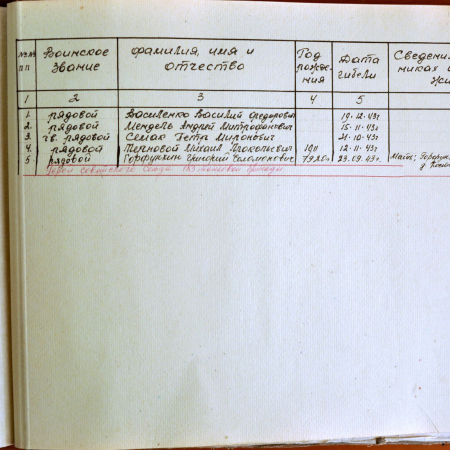 №№ пп Воинское звание Фамилия, имя и отчество Год рожде- ния Дата гибели Сведени никах и жи
1 2 3 4 5
1. рядовой Василенко Василий Федорович 19.12.43г
2. рядовой Мендель Андрей Митрофанович 15.11.43г
3. гв. рядовой Семак Петр Миронович 21.10.43г
4. рядовой Терновой Михаил Прокопьевич 1911 12.11.43г
5 рядовой Горфункин Григорий Соломонович 1920г. 23.09.43г. Мать:
Герой Советского Союза